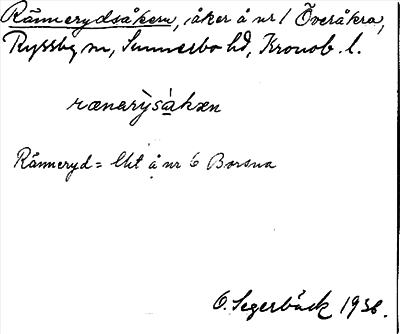 Rånnerydsåkern, åker å nr 1 Överåkra,
Ryssby sn, Sunnerbo hd, Kronob. l.
rænarỳsákxn
Rånneryd = lht å nr 6 Borsna
O. Segerbäck 1936.